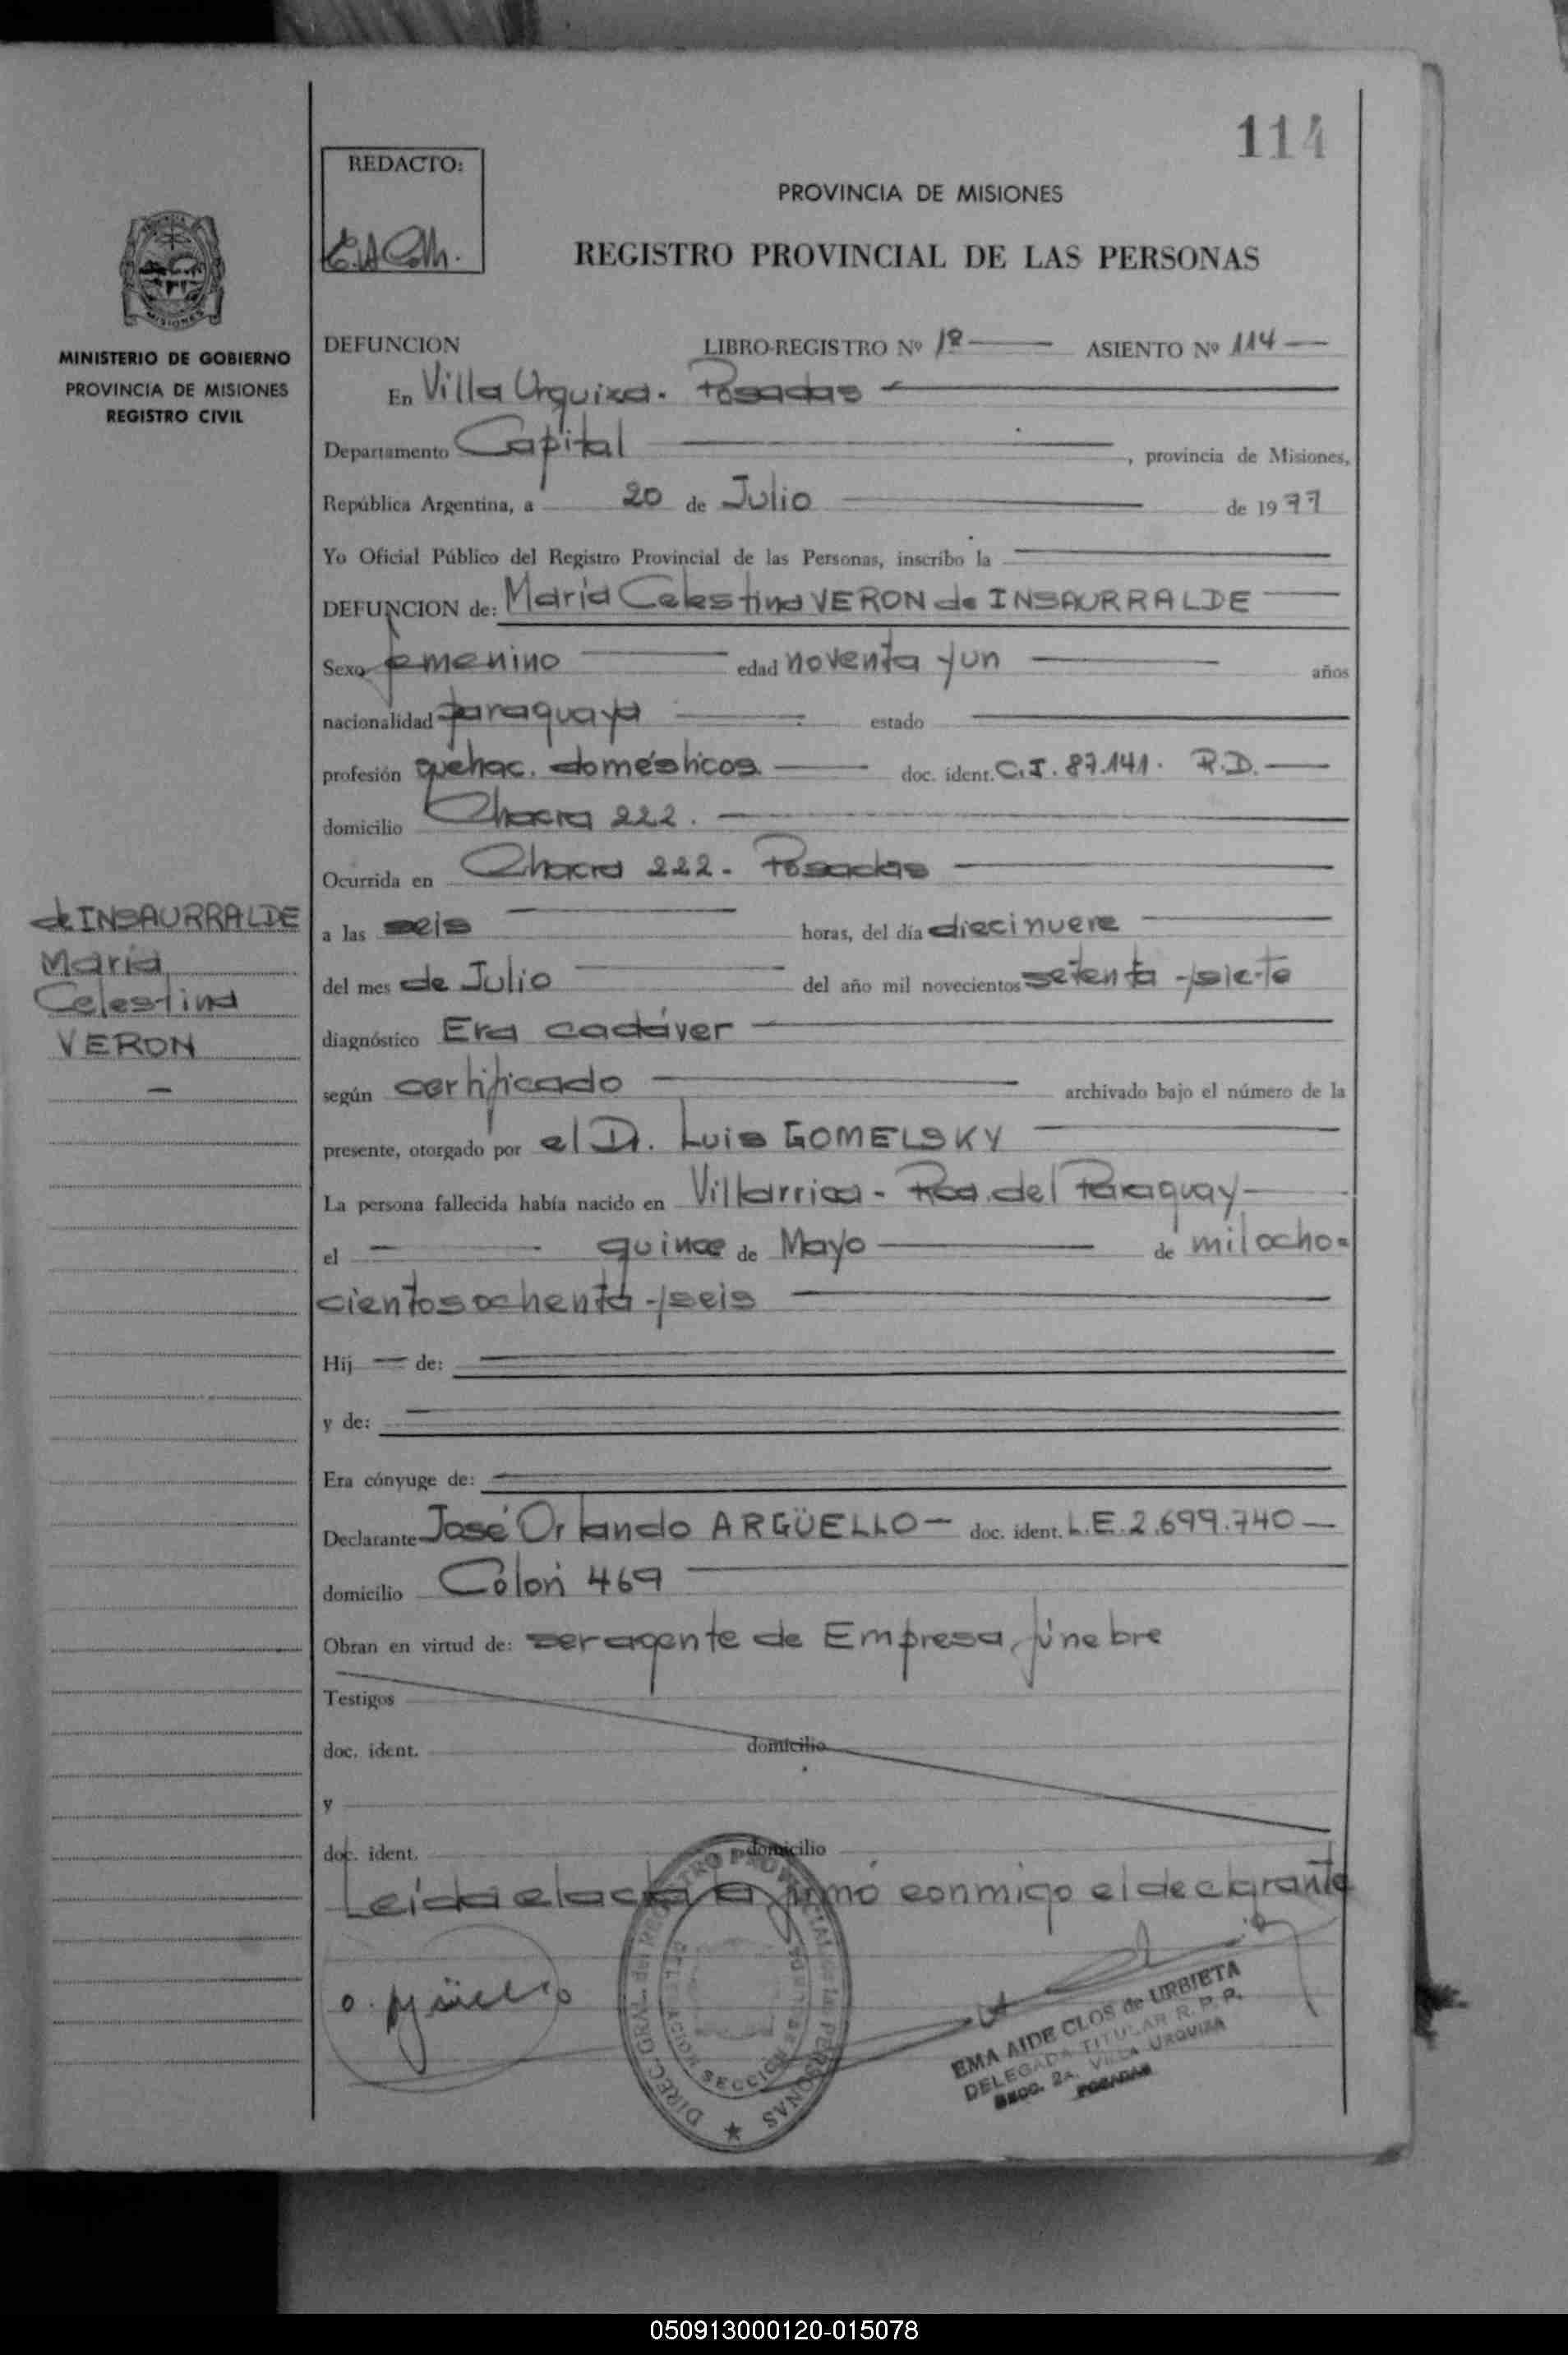 114
REDACTO:
PROVINCIA DE MISIONES
REGISTRO PROVINCIAL DE LAS PERSONAS
MISIONES
MINISTERIO DE GOBIERNO
PROVINCIA DE MISIONES
REGISTRO CIVIL
DEFUNCION LIBRO-REGISTRO Nº 18 ASIENTO Nº 114
En Villa Urquiza. Posadas
Departamento Capital , provincia de Misiones,
República Argentina, a 20 de Julio de 1977
Yo Oficial Público del Registro Provincial de las Personas, inscribo la
DEFUNCION de: María Celestina VERON de INSAURRALDE
Sexo femenino edad noventa y un años
nacionalidad paraguaya estado
profesión quehac. domésticos doc. ident. C.I. 87.141. R.D.
domicilio Chacra 222.
Ocurrida en Chacra 222 - Posadas
de INSAURRALDE
María
Celestina
VERON
a las seis horas, del día diecinueve
del mes de Julio del año mil novecientos setenta y siete
diagnóstico Era cadáver
según certificado archivado bajo el número de la
presente, otorgado por el Dr. Luis GOMELSKY
La persona fallecida había nacido en Villarrica - Rca. del Paraguay
el quince de Mayo de mil ocho=
cientos ochenta y seis
Hij de:
y de:
Era cónyuge de:
Declarante José Orlando ARGÜELLO - doc. ident. L.E. 2.699.740
domicilio Colón 469
Obran en virtud de: ser agente de Empresa fúnebre
Testigos
doc. ident. domicilio
y
doc. ident. domicilio
Leída el acta la firmó conmigo el declarante
DIREC. GRAL. del REGISTRO PROVINCIAL de las PERSONAS
SECCION
EMA AIDE CLOS de URBIETA
DELEGADA TITULAR R. P. P.
SECC. 2A. VILLA URQUIZA
POSADAS
050913000120-015078